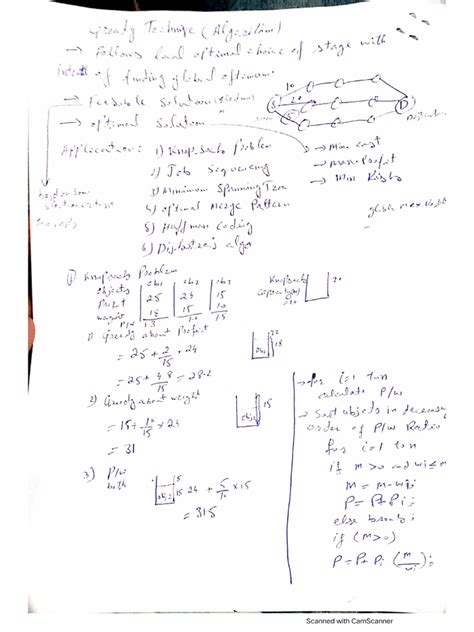 Greedy Technique (Algorithm)
→ Follows local optimal choice of stage with
intent of finding global optimum.
→ Feasible Solution
→ optimal Solution
10
S
20
5
D
→ Min cost
→ Max Profit
→ Min Risk
Application: 1) Knapsack Problem
2) Job Sequencing
3) Minimum Spanning Tree
4) optimal Merge Pattern
5) Huffman Coding
6) Dijkstra's algo
1) Knapsack Problem
objects obj1 obj2 obj3
Profit 25 24 15
weight 18 15 10
P/w 1.3 1.6 1.5
Knapsack
capacity(m)
=20
20
1) Greedy about Profit
= 25 + 2/15 * 24
= 25 + 48/15 = 28.2
obj1
2
18
2) Greedy about weight
= 15 + 10/15 x 24
= 31
15
3) P/w
both
5
obj2 15
24 + 5/10 x 15
= 31.5
→ for i=1 to n
calculate P/w
→ Sort objects in decreasing
order of P/w Ratio
for i=1 to n
if M>0 and wi ≤ M
M = M - wi;
P = P + Pi;
else break;
if (M>0)
P = P + Pi (M/wi);
Scanned with CamScanner